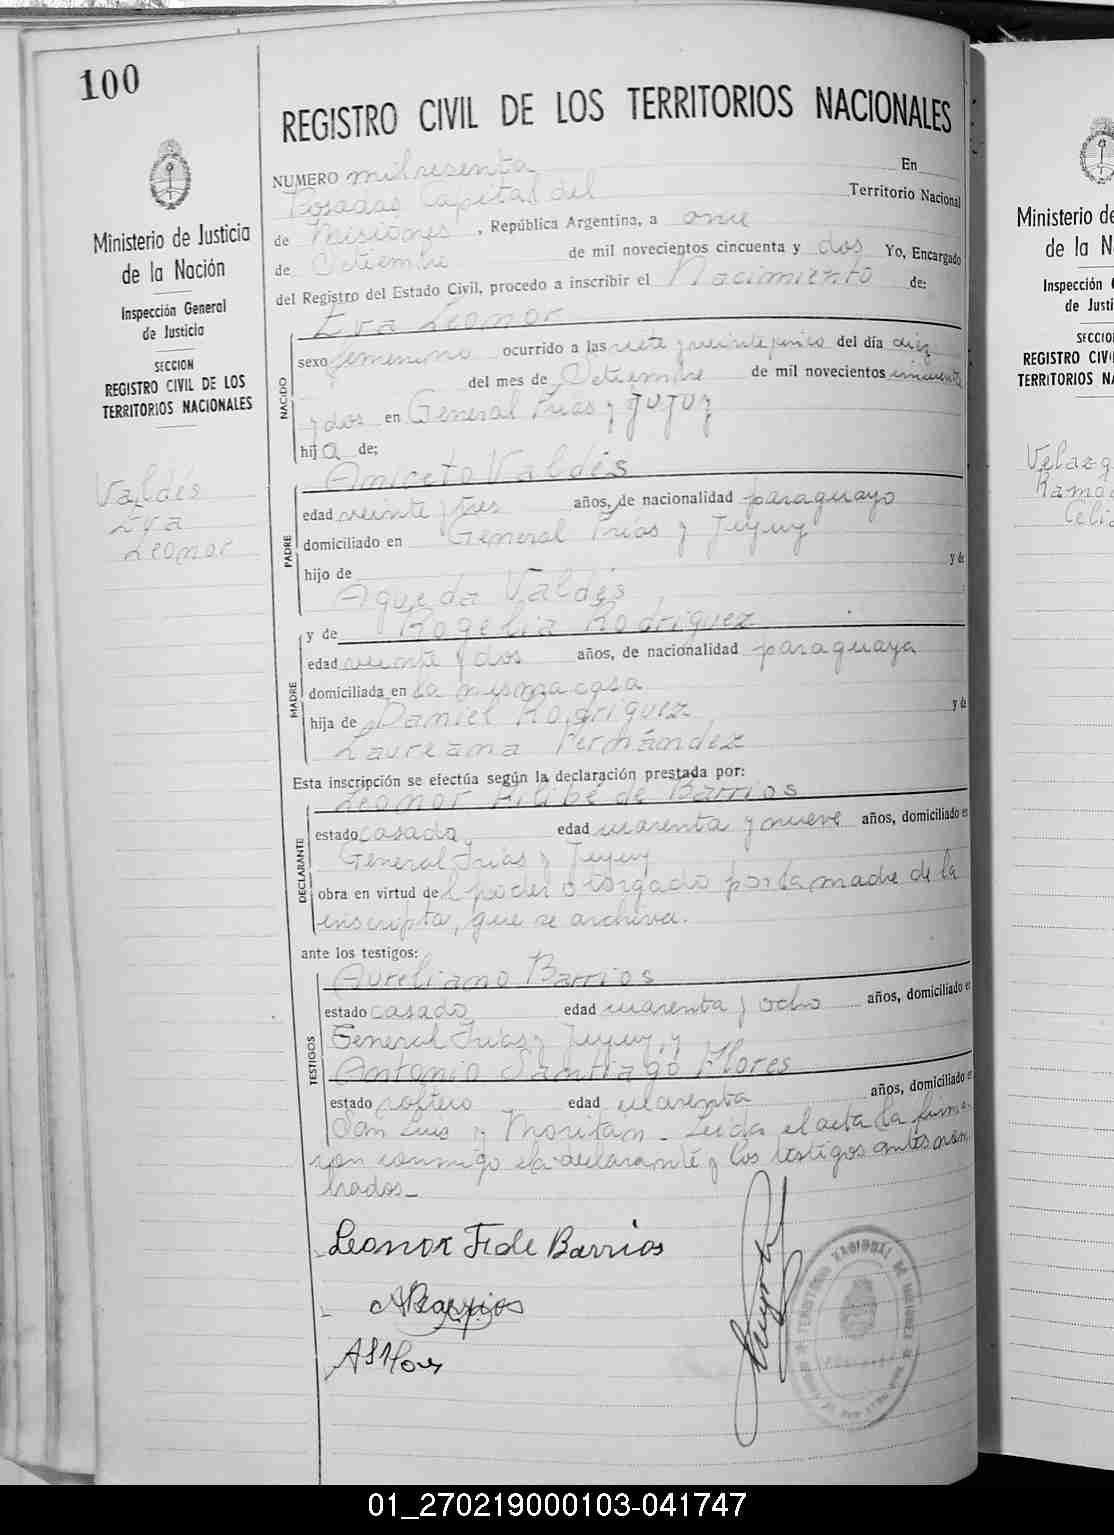 100
REGISTRO CIVIL DE LOS TERRITORIOS NACIONALES
Ministerio de Justicia
de la Nación
Inspección General
de Justicia
SECCION
REGISTRO CIVIL DE LOS
TERRITORIOS NACIONALES
Valdés
Eva
Leonor
NUMERO mil sesenta En
Posadas Capital del Territorio Nacional
de Misiones, República Argentina, a once
de Setiembre de mil novecientos cincuenta y dos Yo, Encargado
del Registro del Estado Civil, procedo a inscribir el Nacimiento de:
Eva Leonor
NACIDO
sexo femenino ocurrido a las siete y veinte del día diez
del mes de Setiembre de mil novecientos cincuenta
y dos en General Frías y Jujuy
hija de:
Aniceto Valdés
PADRE
edad veinte y tres años, de nacionalidad paraguayo
domiciliado en General Frías y Jujuy
hijo de y de
Agueda Valdés
y de Rogelia Rodriguez
MADRE
edad veinte y dos años, de nacionalidad paraguaya
domiciliada en la misma casa
hija de Daniel Rodriguez y de
Laureana Fernández
Esta inscripción se efectúa según la declaración prestada por:
Leonor de Barrios
DECLARANTE
estado casada edad cuarenta y nueve años, domiciliado en
General Frías y Jujuy
obra en virtud del poder otorgado por la madre de la
inscripta, que se archiva.
ante los testigos:
Aureliano Barrios
TESTIGOS
estado casado edad cuarenta y ocho años, domiciliado en
General Frías y Jujuy, y
Antonio Santiago Flores
estado soltero edad cuarenta años, domiciliado en
San Luis y Moritán - Leida el acta la firma-
ron conmigo la declarante y los testigos antes nom-
brados-
Leonor F de Barrios
ABarrios
ASFlores
TERRITORIO NACIONAL DE MISIONES
Ministerio de
de la N
Inspección G
de Justi
SECCIO
REGISTRO CIVI
TERRITORIOS NA
Velazq
Ramo
Celia
01_270219000103-041747